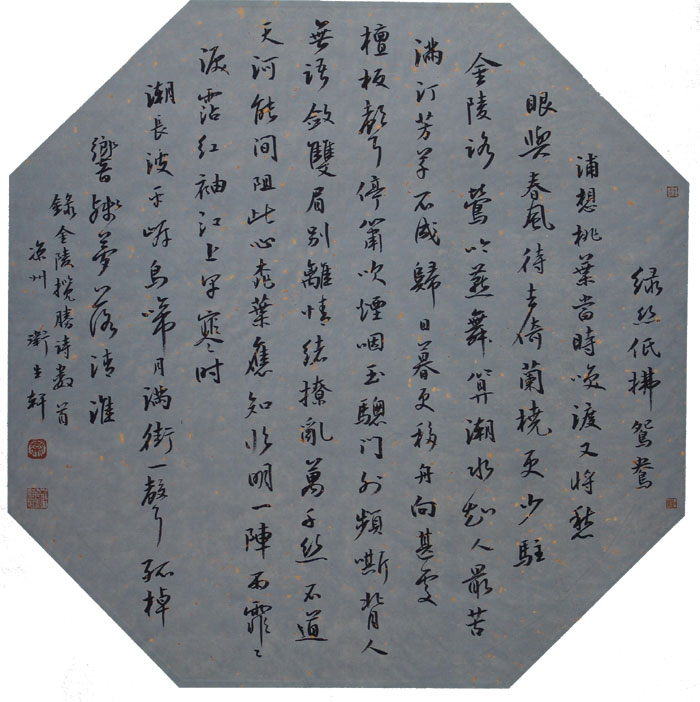 緑丝低拂鴛鴦
浦想桃葉當時喚渡又將愁
眼與春風待去倚蘭橈更少駐
金陵路鶯吟燕舞算潮水知人最苦
滿汀芳草不成歸日暮更移舟向甚處
檀板聲停簫吹煙咽玉驄門外頻嘶背人
無語斂雙眉別離情緒撩亂萬千絲不道
天河能间阻此心桃葉應知將明一陣雨霏霏
淚霑紅袖江上早寒時
潮長波平岸烏啼月滿街一聲孤棹
響殘夢落清淮
錄金陵攬勝诗數首
凉州